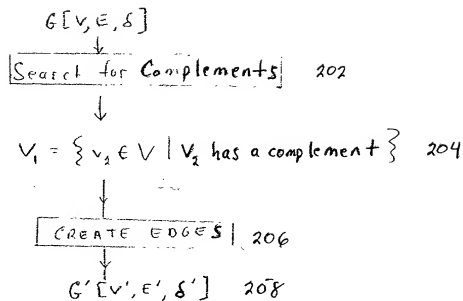 G[V, E, δ]
Search for Complements 202
V₁ = {v₂ ∈ V | V₂ has a complement} 204
CREATE EDGES 206
G'[V', E', δ'] 208